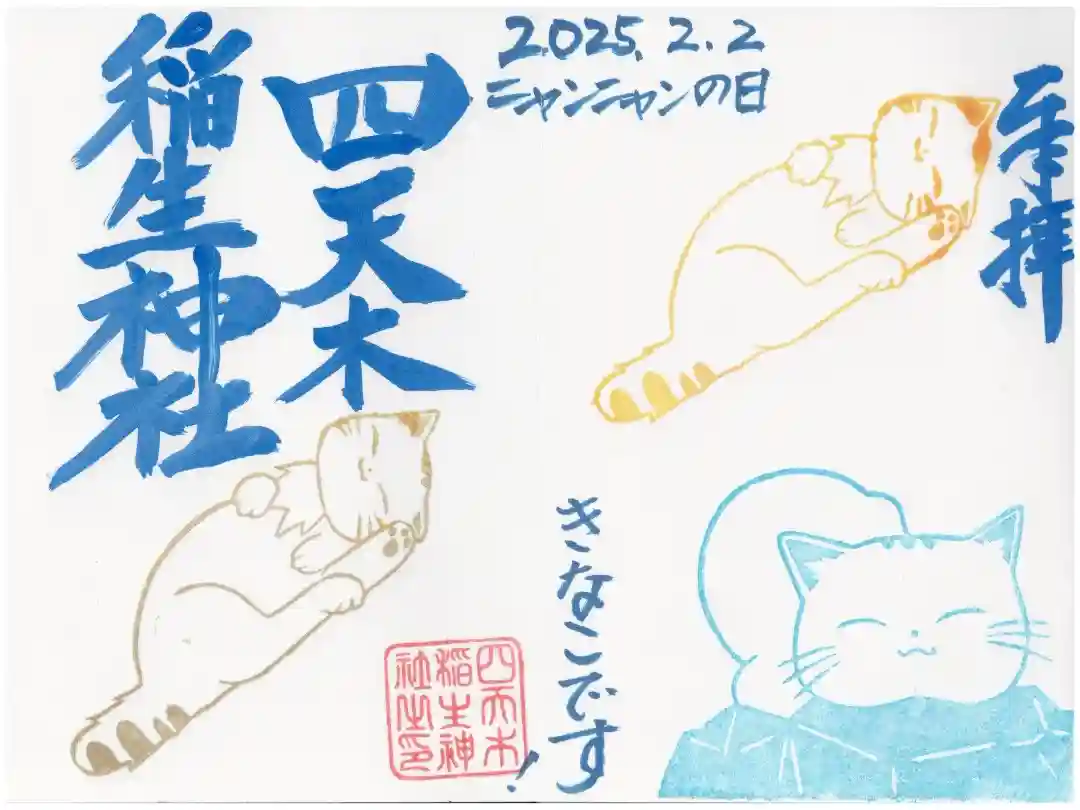 奉拝
2025.2.2
ニャンニャンの日
きなこです!
四天木
稲生神社
四天木
稲生神
社之印